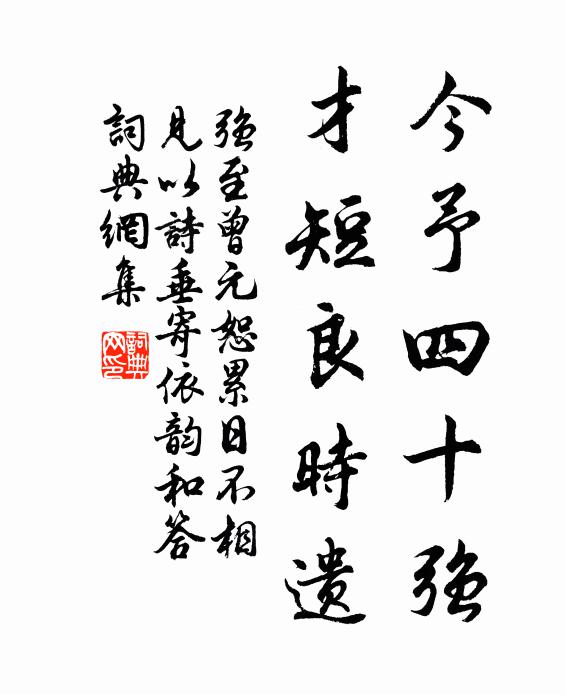 今予四十強
才短良時遺
強至曾元恕累日不相
見以詩垂寄依韵和答
詞典網集
詞典
网印